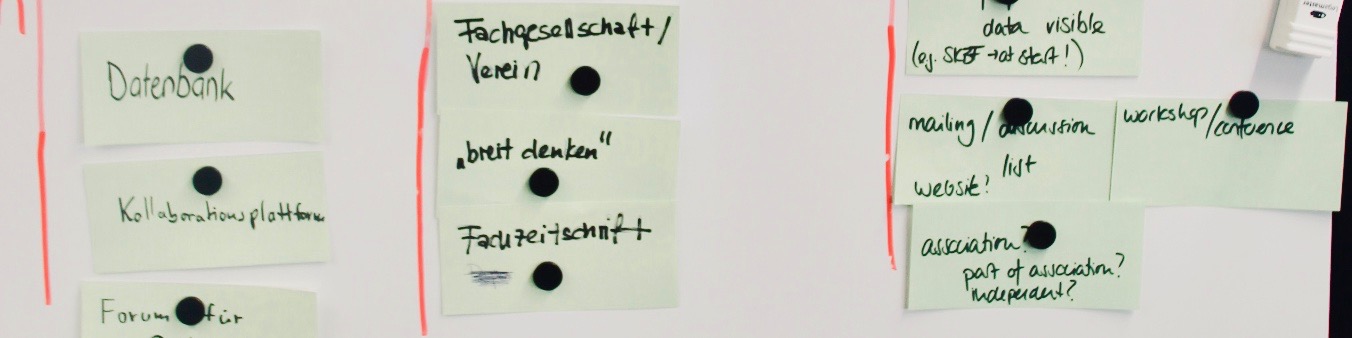 Datenbank
Kollaborationsplattform
Forum für
Fachgesellschaft/
Verein
„breit denken"
Fachzeitschrift
data visible
(e.g. → at start!)
mailing / discussion
list
website?
workshop/conference
association?
part of association?
independent?